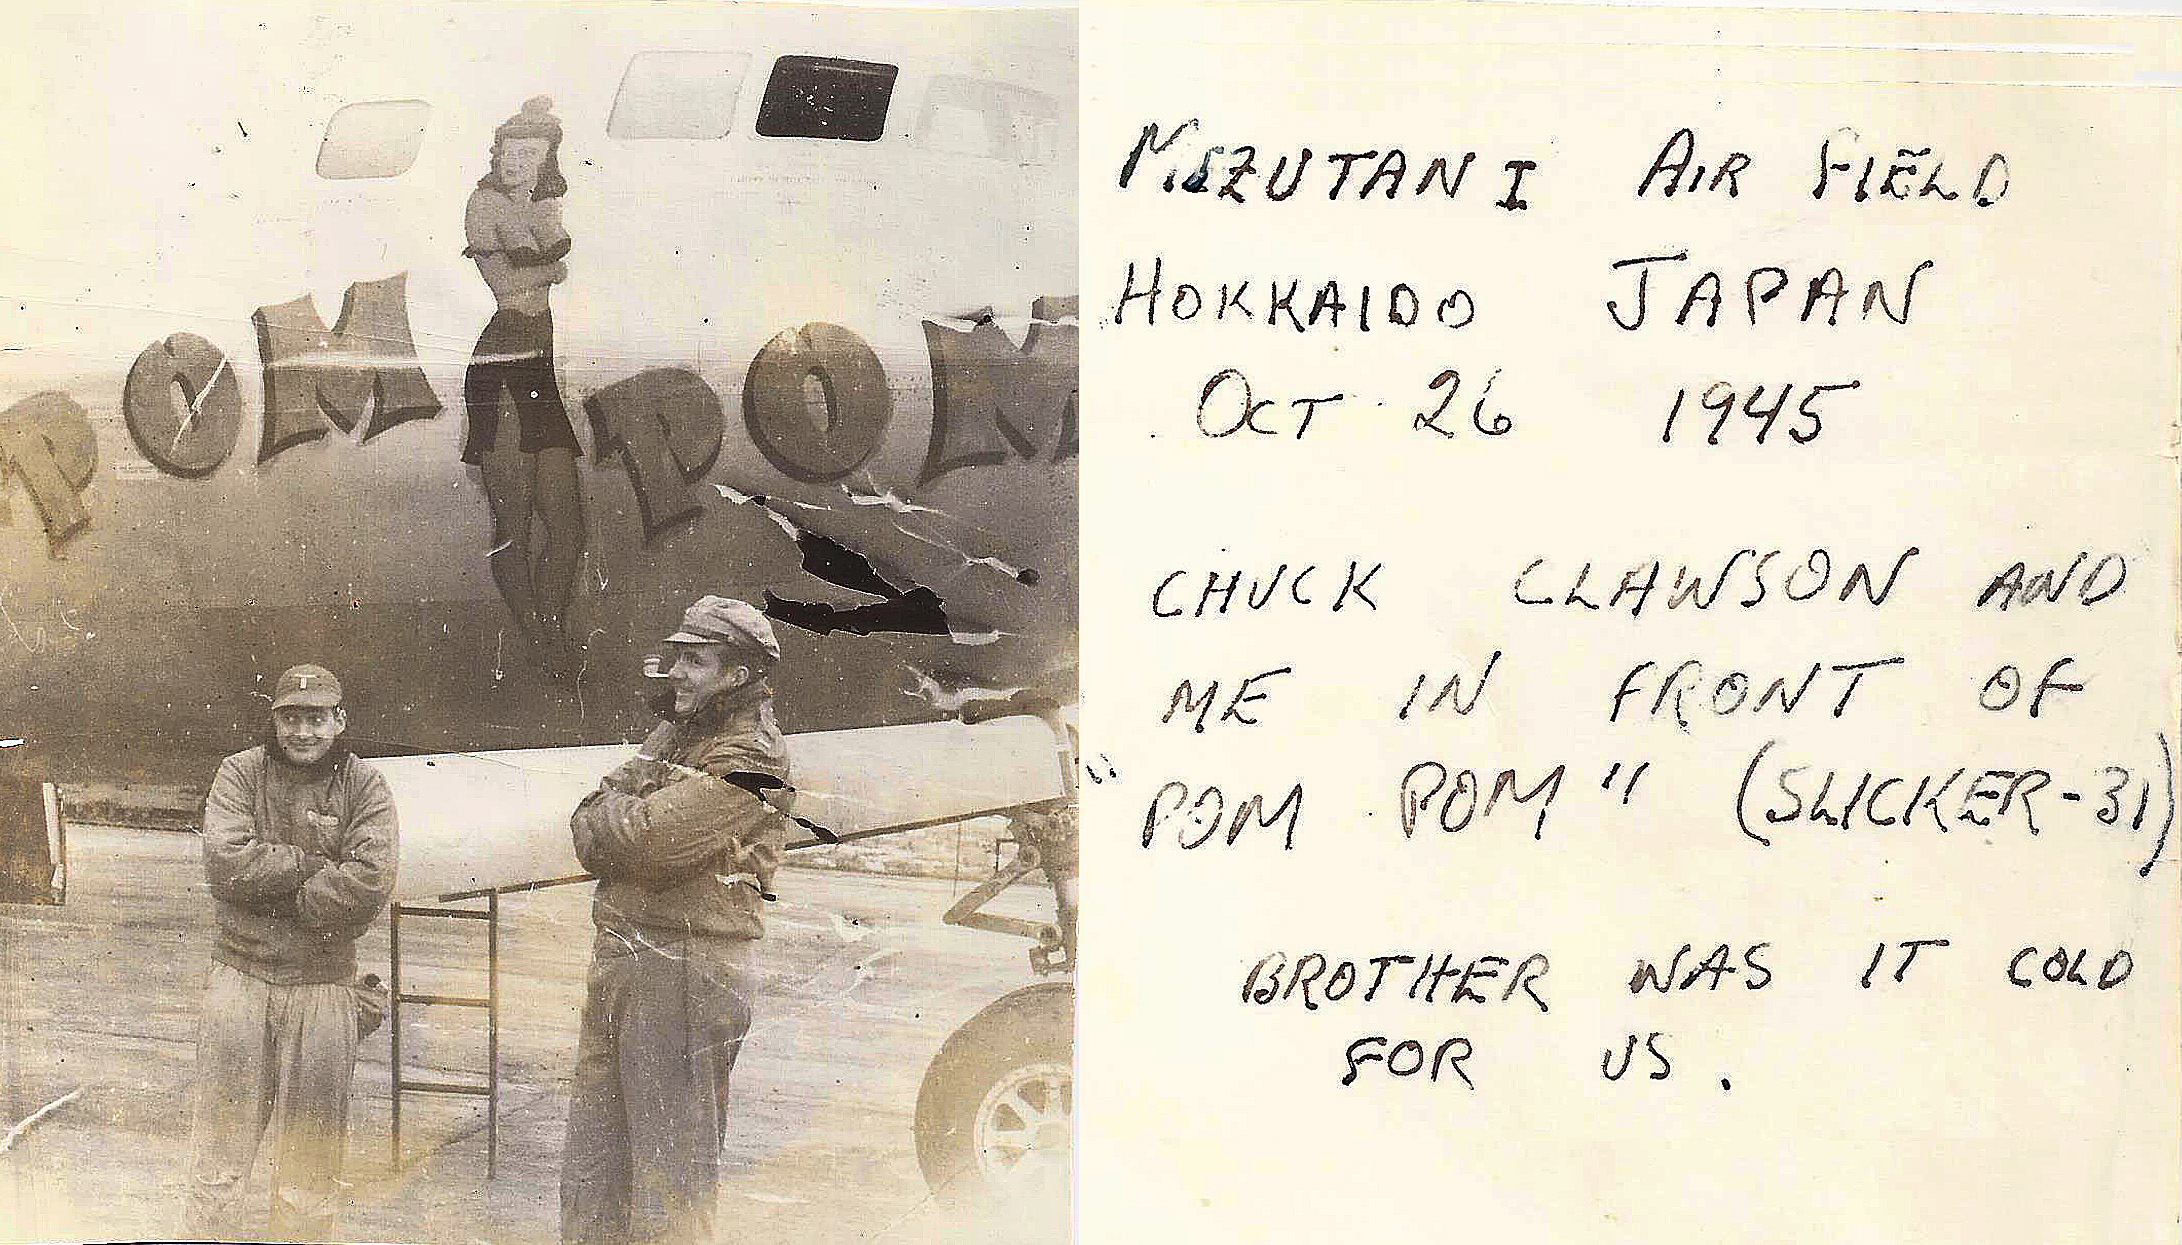 POM POM
MIZUTANI AIR FIELD
HOKKAIDO JAPAN
OCT 26 1945
CHUCK CLAWSON AND
ME IN FRONT OF
"POM POM" (SLICKER-31)
BROTHER WAS IT COLD
FOR US.